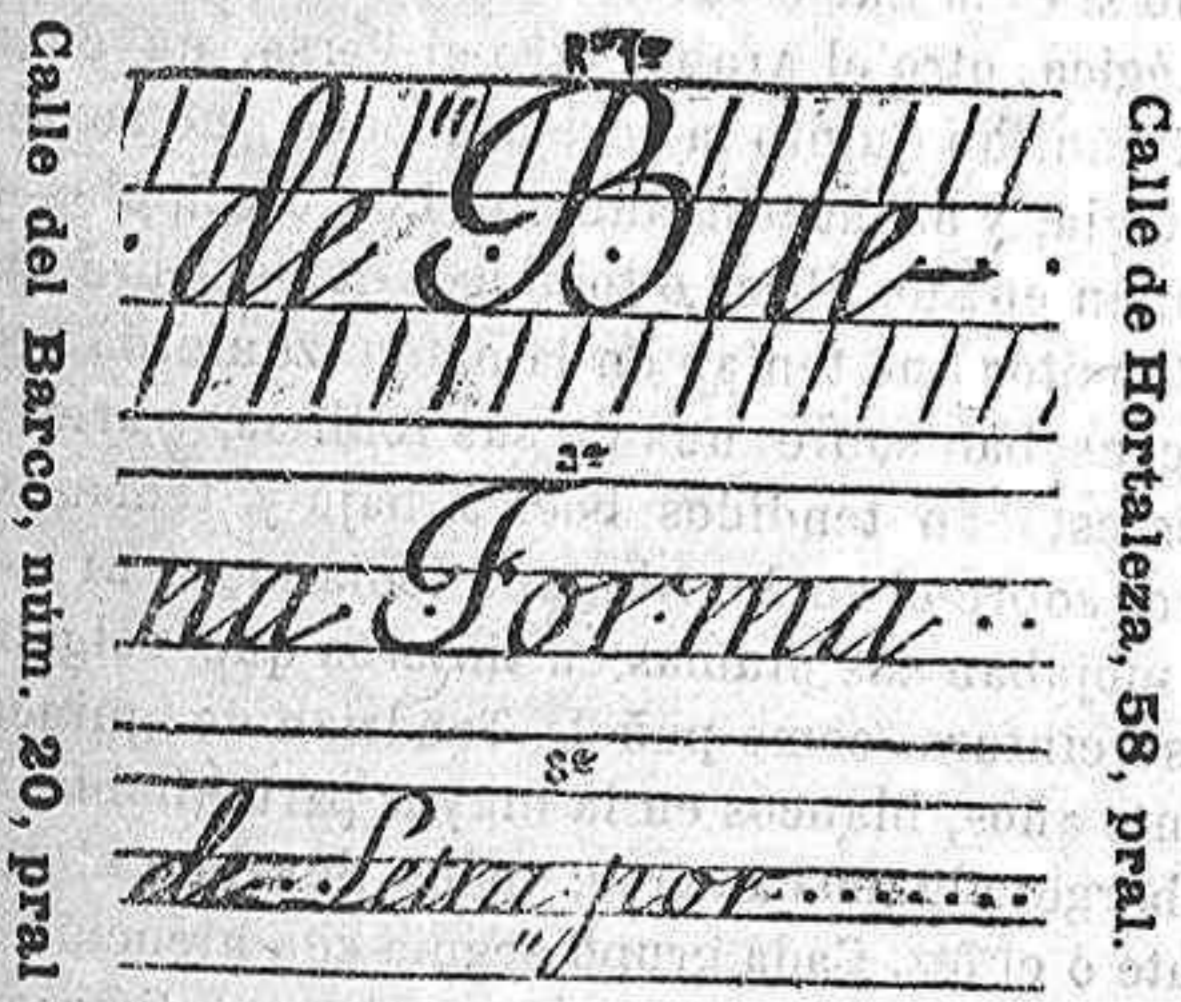 Calle del Barco, núm. 20, pral
Rª 1ª
de Bue-
2ª
na Forma
3ª
de Letra por
Calle de Hortaleza, 58, pral.